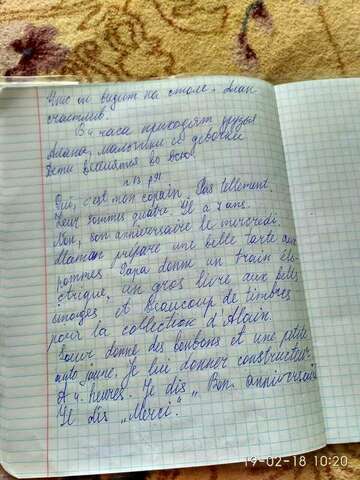 Что он видит на столе. Алан
счастлив.
В 4 часа приходят друзья
Алана, мальчики и девочки
Дети веселятся во всю!
n 13 p 91
Oui, c'est mon copain. Pas tellement.
Leur sommes quatre. Il a 7 ans.
Non, son anniversaire le mercredi.
Maman prépare une belle tarte aux
pommes. Papa donne un train éle-
ctrique, un gros livre aux belles
images et beaucoup de timbres
pour la collection d'Alain.
Sœur donne des bonbons et une petite
auto jaune. Je lui donner constructeur
A 4 heures. Je dis „Bon anniversair
Il dis „Merci."
19-02-18 10:20